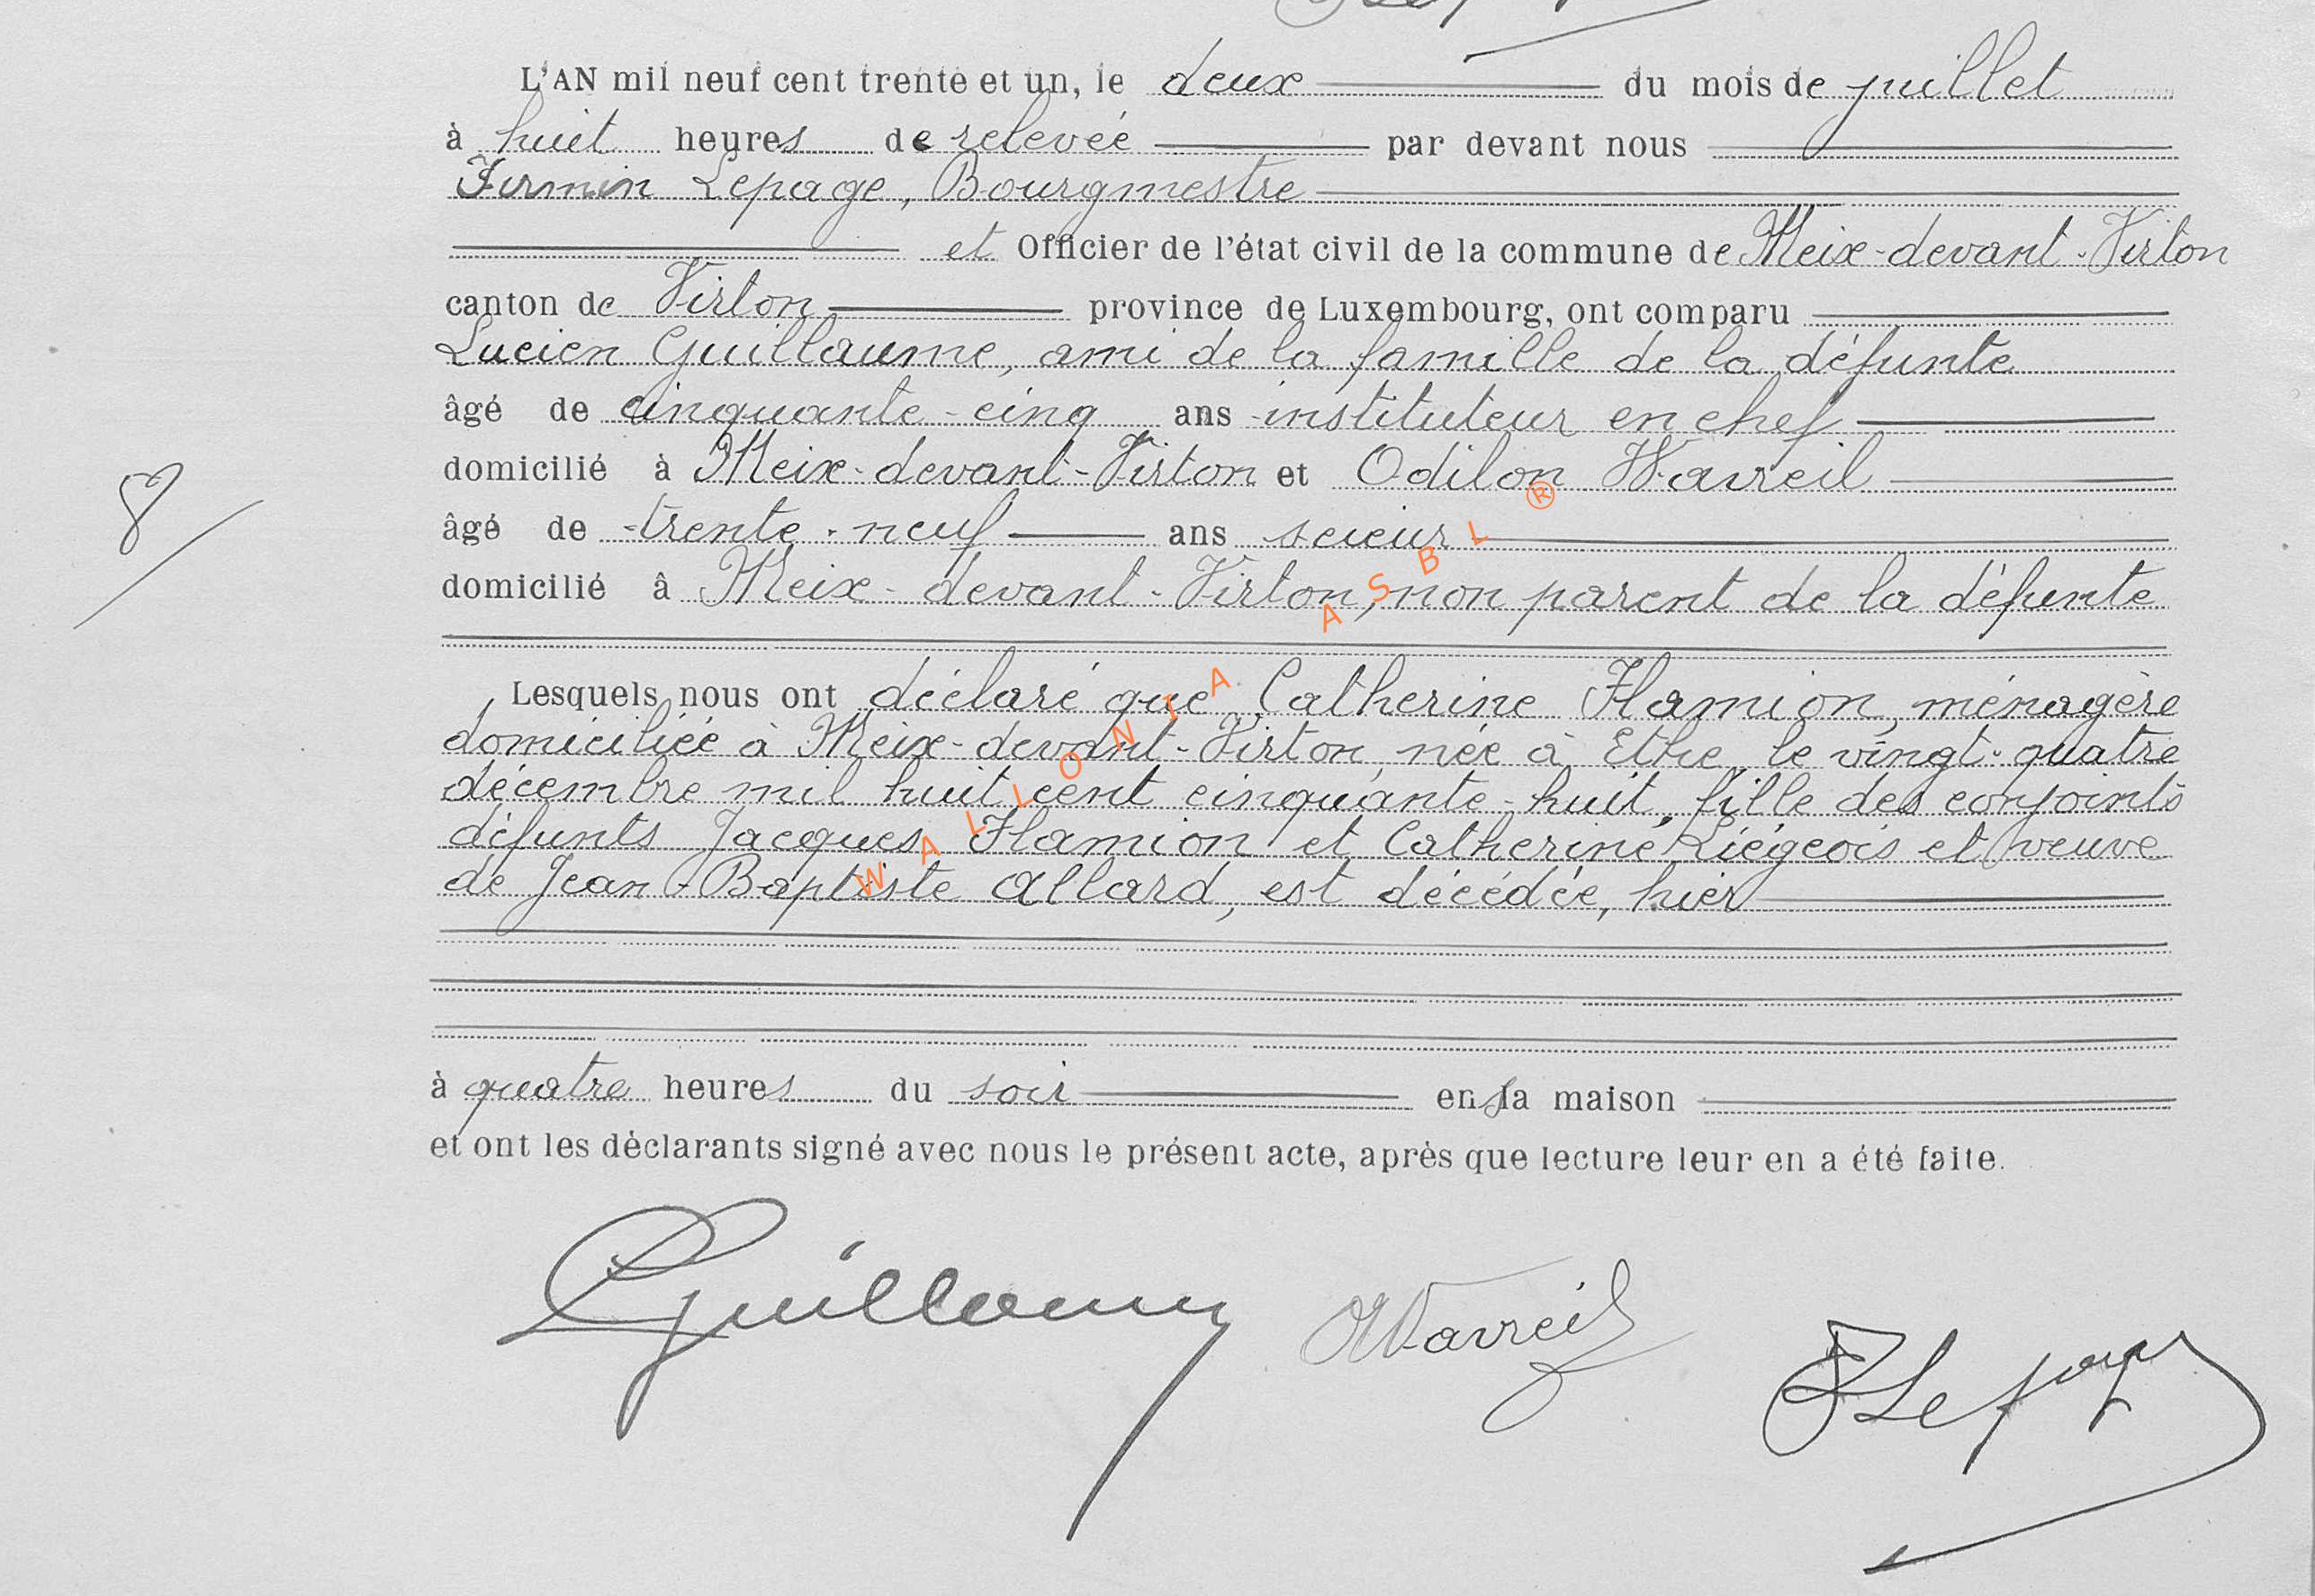 L'AN mil neuf cent trente et un, le deux du mois de juillet
à huit heures de relevée par devant nous
Firmin Lepage, Bourgmestre
et Officier de l'état civil de la commune de Meix-devant-Virton
canton de Virton province de Luxembourg, ont comparu
Lucien Guillaume, ami de la famille de la défunte
âgé de cinquante-cinq ans instituteur en chef
domicilié à Meix-devant-Virton et Odilon Wavreil
âgé de trente-neuf ans scieur
domicilié à Meix-devant-Virton, non parent de la défunte
8
Lesquels nous ont déclaré que Catherine Flamion, ménagère
domiciliée à Meix-devant-Virton, née à Ethe, le vingt-quatre
décembre mil huit cent cinquante-huit, fille des conjoints
défunts Jacques Flamion et Catherine Liégeois et veuve
de Jean-Baptiste Allard, est décédée, hier
WALLONIA ASBL ®
à quatre heures du soir en sa maison
et ont les déclarants signé avec nous le présent acte, après que lecture leur en a été faite.
Guillaume OWavreil FLepage